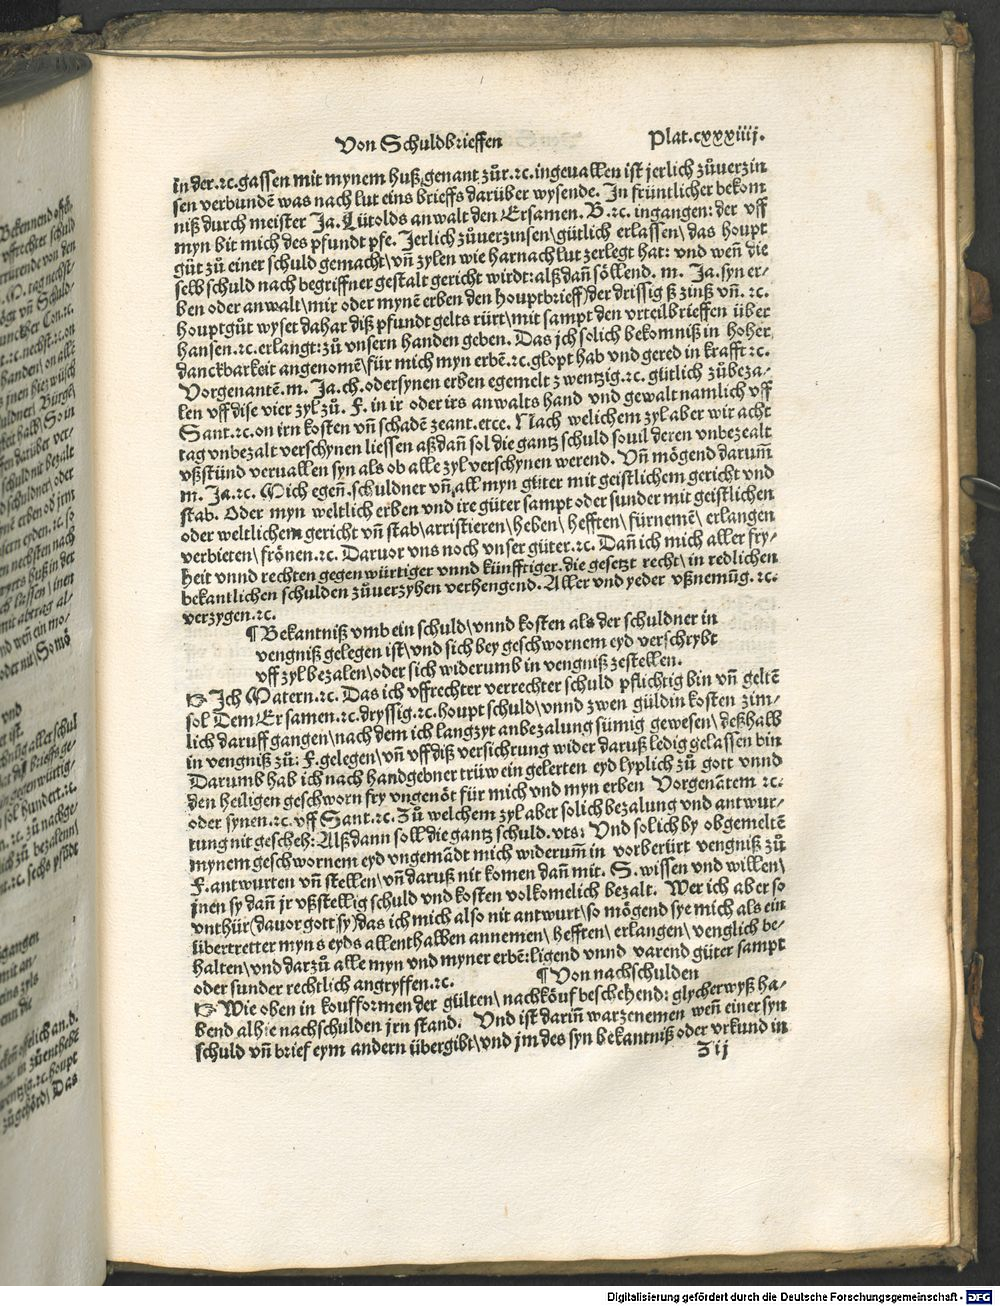 Von Schuldbrieffen Plat.cxxxiiij.
in der.ꝛc.gassen mit mynem huß genant zůr.ꝛc.ingeuallen ist jerlich zůverzin
sen verbundē was nach lut eins brieffs darüber wysende. In früntlicher bekom
niß durch meister Ja. Lütolds anwalt den Ersamen. B.ꝛc. ingangen: der vff
myn bit mich des pfundt pfe. Jerlich zůverzinsen\gütlich erlassen\ das houpt
gůt zů einer schuld gemacht\vñ zylen wie harnach lut zerlegt hat: vnd weñ die
selb schuld nach begriffner gestalt gericht wirdt: alß dañ söllend. m. Ja.syn er⸗
ben oder anwalt\mir oder mynē erben den houptbrieff)der drissig ß zinß vñ. ꝛc.
houptgůt wyset dahar diß pfundt gelts rürt\mit sampt den vrteilbrieffen über
hansen.ꝛc.erlangt: zů vnsern handen geben. Das ich solich bekomniß in hoher
danckbarkeit angenomē\für mich myn erbē.ꝛc.glopt hab vnd gered in krafft ꝛc.
Vorgenantē.m. Ja.ch.odersynen erben egemelt zwentzig.ꝛc. gütlich zůbeza⸗
len vff dise vier zyl zů. F. in ir oder irs anwalts hand vnd gewalt namlich vff
Sant.ꝛc.on irn kosten vñ schadē zeant.etce. Nach welichem zyl aber wir acht
tag vnbezalt verschynen liessen aßdañ sol die gantz schuld souil deren vnbezealt
vßstünd veruallen syn als ob alle zyl verschynen werend. Vñ mögend darum̄
m. Ja.ꝛc. Mich egeñ.schuldner vñ all myn gůter mit geistlichem gericht vnd
stab. Oder myn weltlich erben vnd ire gůter sampt oder sunder mit geistlichen
oder weltlichem gericht vñ stab\arristieren\heben\ hefften\ fürnemē\ erlangen
verbieten\frönen.ꝛc. Daruor vns noch vnser gůter.ꝛc. Dañ ich mich aller fry⸗
heit vnnd rechten gegenwürtiger vnnd künfftiger.die gesetzt recht\in redlichen
bekantlichen schulden zůverzyhen verhengend. Aller vnd yeder vßnemūg. ꝛc.
verzygen.ꝛc.
¶Bekantniß vmb ein schuld\vnnd kosten als der schuldner in
vengniß gelegen ist\vnd sich bey geschwornem eyd verschrybt
vff zyl bezalen\oder sich widerumb in vengniß zestellen.
☞ Ich Matern.ꝛc. Das ich vffrechter verrechter schuld pflichtig bin vñ geltē
sol Dem Ersamen.ꝛc.dryssig.ꝛc.houpt schuld\vnnd zwen güldin kosten zim⸗
lich daruff gangen\nach dem ich langzyt anbezalung sümig gewesen\deßhalb
in vengniß zů: F.gelegen\vñ vff diß versichrung wider daruß ledig gelassen bin
Darumb hab ich nach handgebner trüw ein gelerten eyd lyplich zů gott vnnd
den heiligen geschworn fry vngenöt für mich vnd myn erben Vorgenāten ꝛc.
oder synen.ꝛc. vff Sant.ꝛc. Zů welchem zyl aber solich bezalung vnd antwur⸗
tung nit gescheh: Alß dann soll die gantz schuld.vts: Vnd sol ich by obgemeltē
mynem geschwornem eyd vngemādt mich widerum̄ in vorberürt vengniß zů
F.antwurten vñ stellen\vñ daruß nit komen dañ mit. S. wissen vnd willen\
jnen sy dañ jr vßstellig schuld vnd kosten volkomelich bezalt. Wer ich aber so
vnthür(dauor gott sy)das ich mich also nit antwurt\so mögend sye mich als ein
übertretter myns eyds allenthalben annemen\ hefften\ erlangen\ venglich be⸗
halten\vnd darzů alle myn vnd myner erbē:ligend vnnd varend gůter sampt
oder sunder rechtlich angryffen.ꝛc. ¶Von nachschulden
☞ Wie oben in koufformen der gülten\nachköuf beschehend: glycherwyß ha⸗
bend alhie nachschulden jrn stand. Vnd ist dariñ warzenemen weñ einer syn
schuld vñ brief eym andern übergibt\vnd jm des syn bekantniß oder vrkund in
Z ij
Digitalisierung gefördert durch die Deutsche Forschungsgemeinschaft - DFG